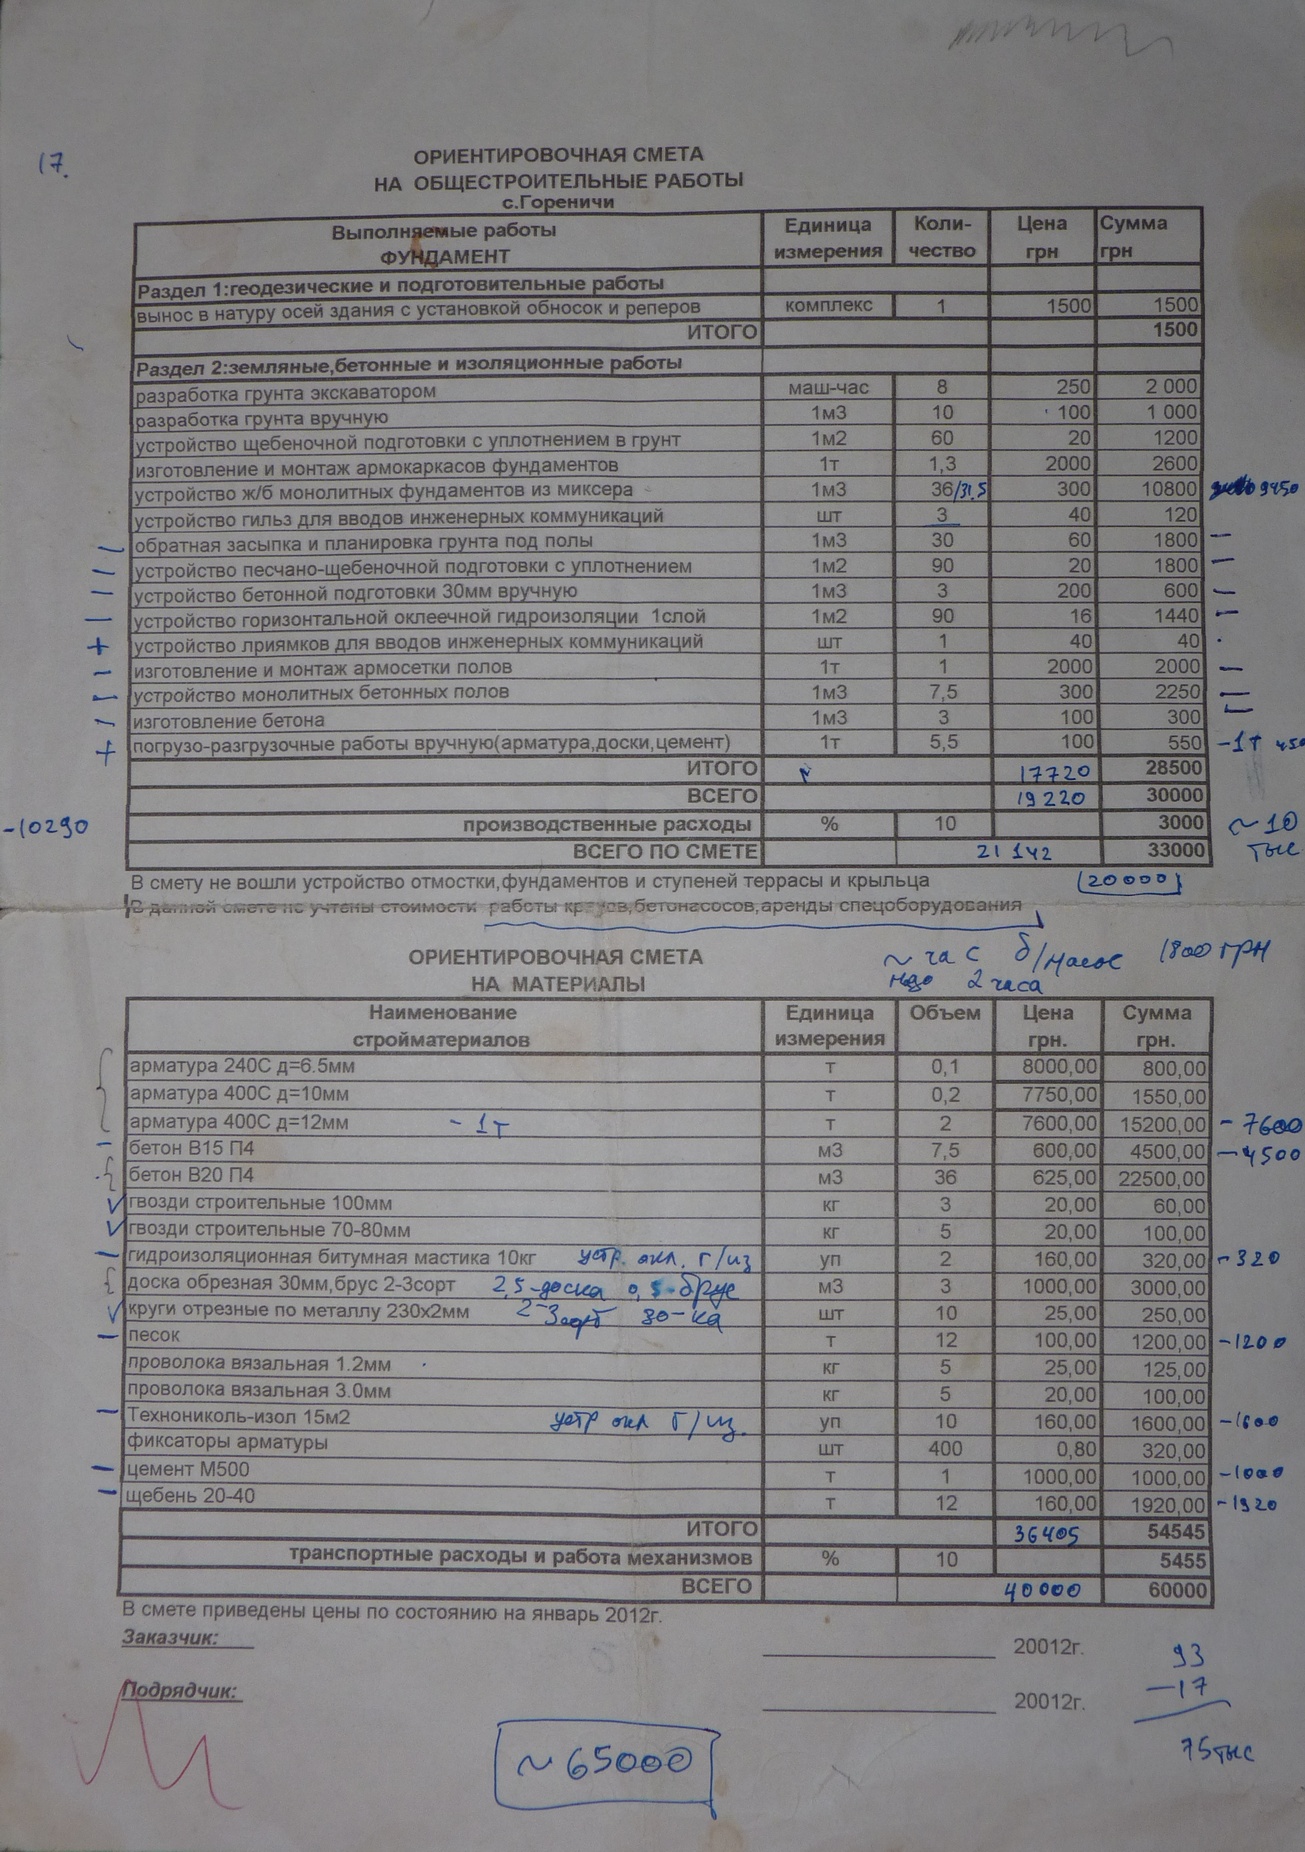 17.
ОРИЕНТИРОВОЧНАЯ СМЕТА
НА ОБЩЕСТРОИТЕЛЬНЫЕ РАБОТЫ
с.Гореничи
Выполняемые работы ФУНДАМЕНТ Единица измерения Коли-чество Цена грн Сумма грн
Раздел 1:геодезические и подготовительные работы
вынос в натуру осей здания с установкой обносок и реперов комплекс 1 1500 1500
ИТОГО 1500
Раздел 2:земляные,бетонные и изоляционные работы
разработка грунта экскаватором маш-час 8 250 2 000
разработка грунта вручную 1м3 10 100 1 000
устройство щебеночной подготовки с уплотнением в грунт 1м2 60 20 1200
изготовление и монтаж армокаркасов фундаментов 1т 1,3 2000 2600
устройство ж/б монолитных фундаментов из миксера 1м3 36/31,5 300 10800 9450
устройство гильз для вводов инженерных коммуникаций шт 3 40 120
обратная засыпка и планировка грунта под полы 1м3 30 60 1800 –
устройство песчано-щебеночной подготовки с уплотнением 1м2 90 20 1800 –
устройство бетонной подготовки 30мм вручную 1м3 3 200 600 –
устройство горизонтальной оклеечной гидроизоляции 1слой 1м2 90 16 1440 –
+ устройство лриямков для вводов инженерных коммуникаций шт 1 40 40
– изготовление и монтаж армосетки полов 1т 1 2000 2000 –
устройство монолитных бетонных полов 1м3 7,5 300 2250 –
изготовление бетона 1м3 3 100 300
+ погрузо-разгрузочные работы вручную(арматура,доски,цемент) 1т 5,5 100 550 -1т 450
ИТОГО 17720 28500
ВСЕГО 19220 30000
-10290 производственные расходы % 10 3000 ~10 тыс
ВСЕГО ПО СМЕТЕ 21142 33000
В смету не вошли устройство отмостки,фундаментов и ступеней террасы и крыльца (20000)
В данной смете не учтены стоимости работы кранов,бетонасосов,аренды спецоборудования
~ час б/насос 1800 грн
надо 2 часа
ОРИЕНТИРОВОЧНАЯ СМЕТА
НА МАТЕРИАЛЫ
Наименование стройматериалов Единица измерения Объем Цена грн. Сумма грн.
арматура 240С д=6.5мм т 0,1 8000,00 800,00
арматура 400С д=10мм т 0,2 7750,00 1550,00
арматура 400С д=12мм - 1т т 2 7600,00 15200,00 - 7600
– бетон В15 П4 м3 7,5 600,00 4500,00 - 4500
бетон В20 П4 м3 36 625,00 22500,00
гвозди строительные 100мм кг 3 20,00 60,00
гвозди строительные 70-80мм кг 5 20,00 100,00
– гидроизоляционная битумная мастика 10кг устр. окл. г/из уп 2 160,00 320,00 - 320
доска обрезная 30мм,брус 2-3сорт 2,5-доска 0,5-брус м3 3 1000,00 3000,00
круги отрезные по металлу 230х2мм 2-3сорт 30-ка шт 10 25,00 250,00
– песок т 12 100,00 1200,00 -1200
проволока вязальная 1.2мм кг 5 25,00 125,00
проволока вязальная 3.0мм кг 5 20,00 100,00
– Технониколь-изол 15м2 устр окл г/из. уп 10 160,00 1600,00 -1600
фиксаторы арматуры шт 400 0,80 320,00
– цемент М500 т 1 1000,00 1000,00 -1000
– щебень 20-40 т 12 160,00 1920,00 -1920
ИТОГО 36405 54545
транспортные расходы и работа механизмов % 10 5455
ВСЕГО 40000 60000
В смете приведены цены по состоянию на январь 2012г.
Заказчик: 20012г.
Подрядчик: 20012г.
93
–17
75тыс
~65000